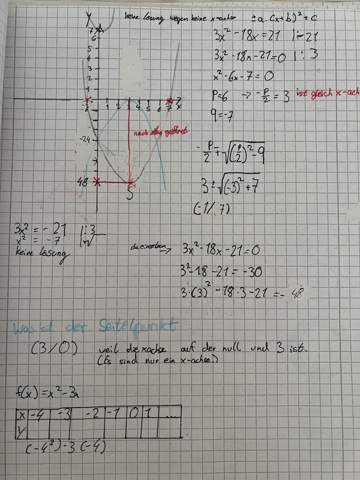 keine lösung wegen keine x-achse
± a (x+b)² + c
3x² - 18x = 21 | - 21
3x² - 18x - 21 = 0 | : 3
x² - 6x - 7 = 0
P = 6 → - p/2 = 3 ist gleich x-ach
q = -7
nach oben geöffnet
- p/2 ± √(p/2)² - q
3 ± √(-3)² + 7
(-1/ 7)
-24
-48
S
3x² = - 21 | : 3
x² = - 7 | √
keine Lösung
→ 3x² - 18x - 21 = 0
3² - 18 - 21 = -30
3 · (3)² - 18 · 3 - 21 = - 48
Was ist der Scheitelpunkt
(3/0) weil die xachse auf der null und 3 ist.
(Es sind nur ein x-achse)
f(x) = x² - 3x
X -4 -3 -2 -1 0 1 ....
Y
(-4²) - 3 (-4)